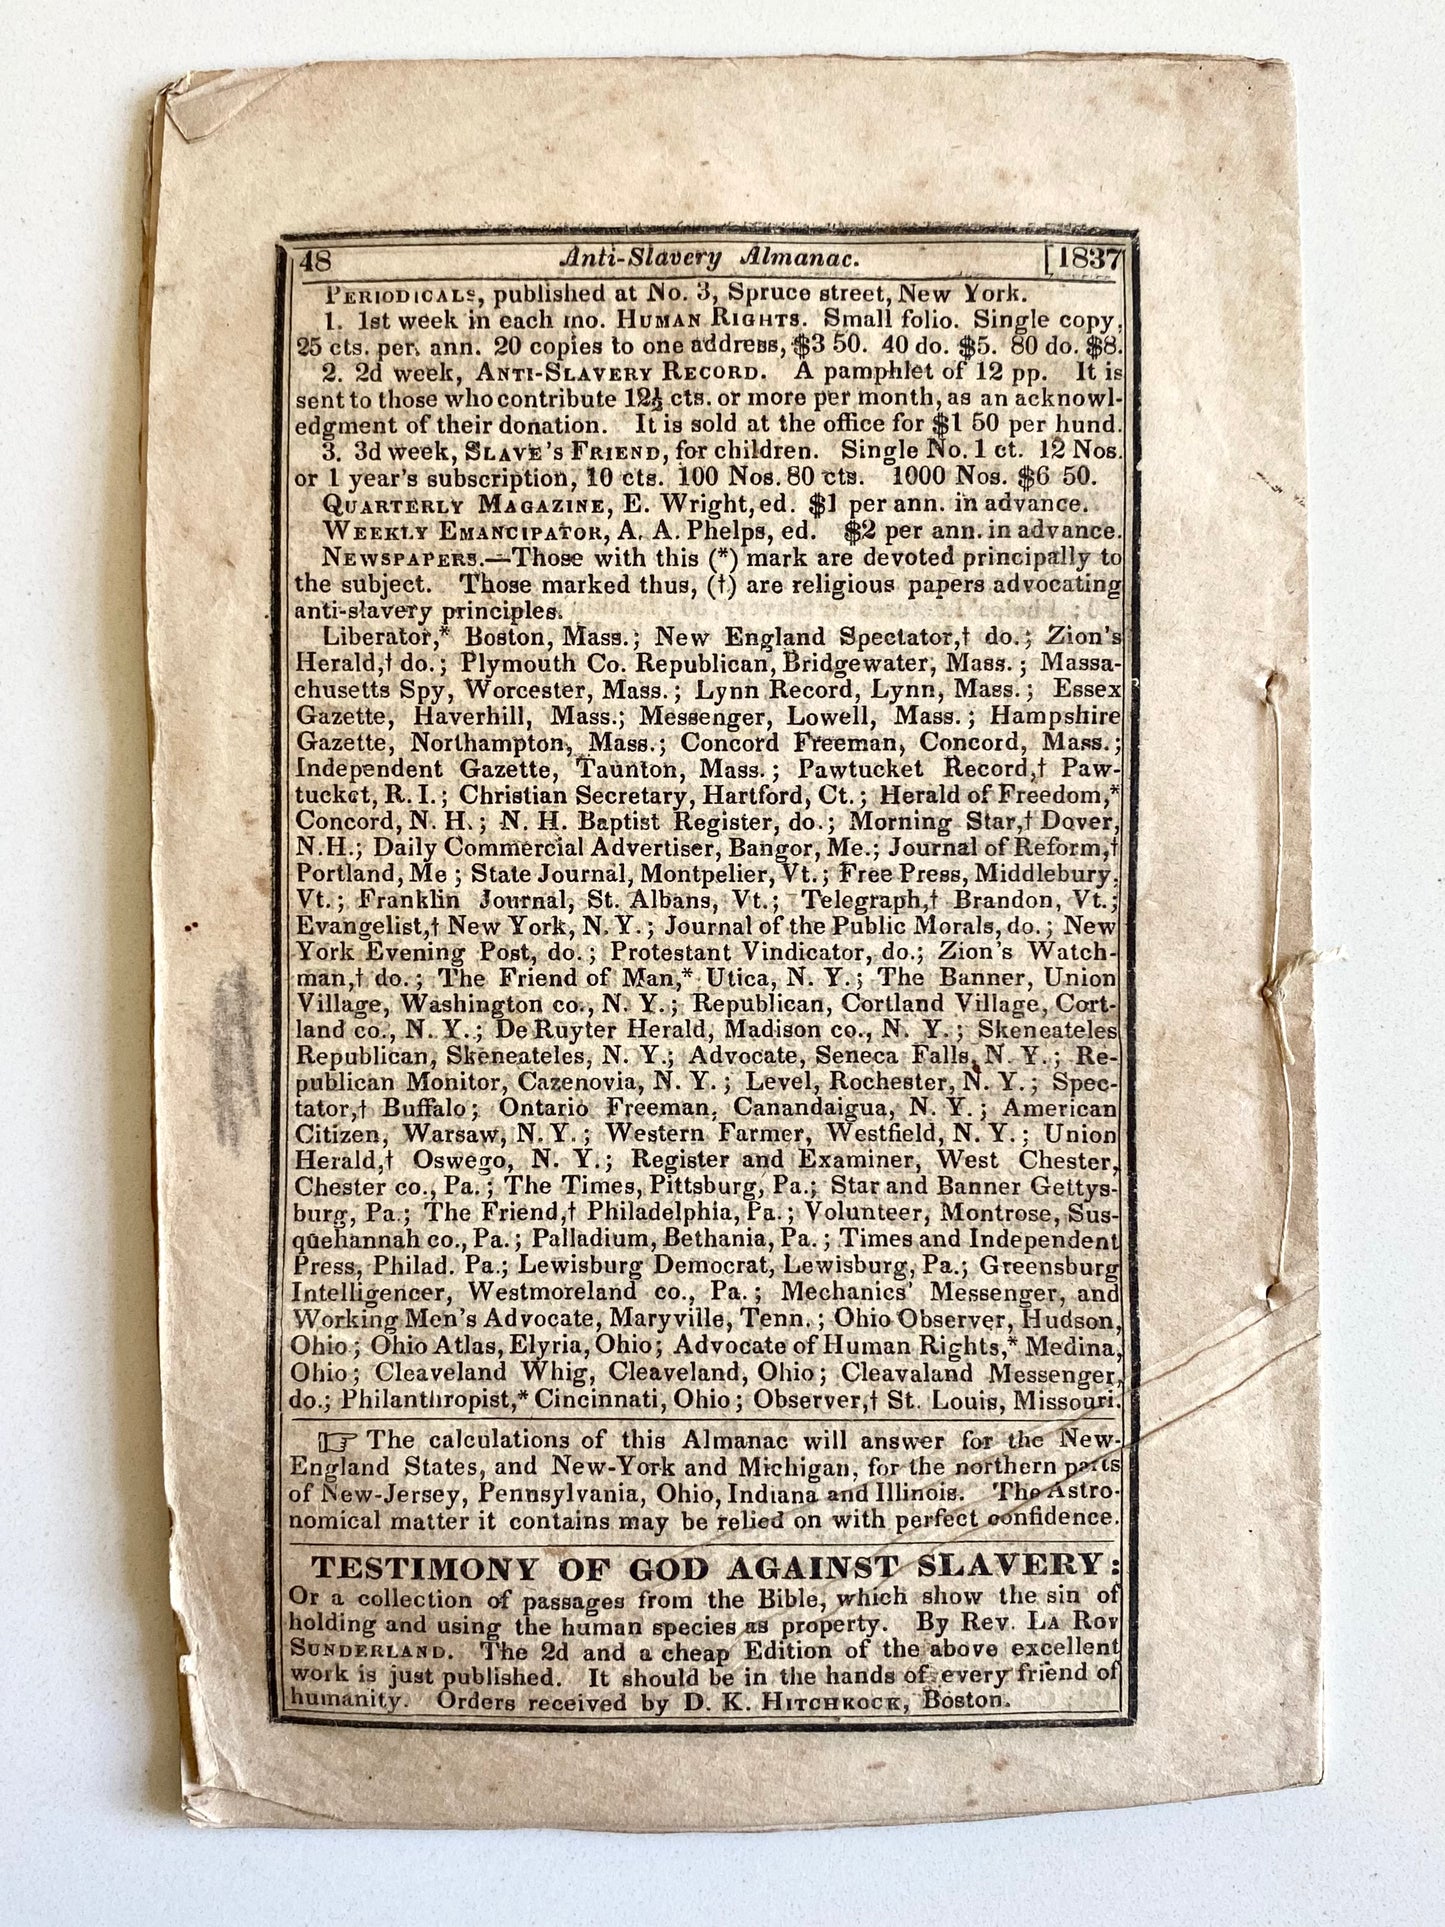 48 Anti-Slavery Almanac. [1837
PERIODICALS, published at No. 3, Spruce street, New York.
1. 1st week in each mo. HUMAN RIGHTS. Small folio. Single copy,
25 cts. per. ann. 20 copies to one address, $3 50. 40 do. $5. 80 do. $8.
2. 2d week, ANTI-SLAVERY RECORD. A pamphlet of 12 pp. It is
sent to those who contribute 12½ cts. or more per month, as an acknowl-
edgment of their donation. It is sold at the office for $1 50 per hund.
3. 3d week, SLAVE'S FRIEND, for children. Single No. 1 ct. 12 Nos.
or 1 year's subscription, 10 cts. 100 Nos. 80 cts. 1000 Nos. $6 50.
QUARTERLY MAGAZINE, E. Wright, ed. $1 per ann. in advance.
WEEKLY EMANCIPATOR, A. A. Phelps, ed. $2 per ann. in advance.
NEWSPAPERS.—Those with this (*) mark are devoted principally to
the subject. Those marked thus, (†) are religious papers advocating
anti-slavery principles.
Liberator,* Boston, Mass.; New England Spectator,† do.; Zion's
Herald,† do.; Plymouth Co. Republican, Bridgewater, Mass.; Massa-
chusetts Spy, Worcester, Mass.; Lynn Record, Lynn, Mass.; Essex
Gazette, Haverhill, Mass.; Messenger, Lowell, Mass.; Hampshire
Gazette, Northampton, Mass.; Concord Freeman, Concord, Mass.;
Independent Gazette, Taunton, Mass.; Pawtucket Record,† Paw-
tucket, R. I.; Christian Secretary, Hartford, Ct.; Herald of Freedom,*
Concord, N. H.; N. H. Baptist Register, do.; Morning Star,† Dover,
N.H.; Daily Commercial Advertiser, Bangor, Me.; Journal of Reform,†
Portland, Me; State Journal, Montpelier, Vt.; Free Press, Middlebury,
Vt.; Franklin Journal, St. Albans, Vt.; Telegraph,† Brandon, Vt.;
Evangelist,† New York, N. Y.; Journal of the Public Morals, do.; New
York Evening Post, do.; Protestant Vindicator, do.; Zion's Watch-
man,† do.; The Friend of Man,* Utica, N. Y.; The Banner, Union
Village, Washington co., N. Y.; Republican, Cortland Village, Cort-
land co., N. Y.; De Ruyter Herald, Madison co., N. Y.; Skeneateles
Republican, Skeneateles, N. Y.; Advocate, Seneca Falls, N. Y.; Re-
publican Monitor, Cazenovia, N. Y.; Level, Rochester, N. Y.; Spec-
tator,† Buffalo; Ontario Freeman, Canandaigua, N. Y.; American
Citizen, Warsaw, N. Y.; Western Farmer, Westfield, N. Y.; Union
Herald,† Oswego, N. Y.; Register and Examiner, West Chester,
Chester co., Pa.; The Times, Pittsburg, Pa.; Star and Banner Gettys-
burg, Pa.; The Friend,† Philadelphia, Pa.; Volunteer, Montrose, Sus-
quehannah co., Pa.; Palladium, Bethania, Pa.; Times and Independent
Press, Philad. Pa.; Lewisburg Democrat, Lewisburg, Pa.; Greensburg
Intelligencer, Westmoreland co., Pa.; Mechanics' Messenger, and
Working Men's Advocate, Maryville, Tenn.; Ohio Observer, Hudson,
Ohio; Ohio Atlas, Elyria, Ohio; Advocate of Human Rights,* Medina,
Ohio; Cleaveland Whig, Cleaveland, Ohio; Cleavaland Messenger,
do.; Philanthropist,* Cincinnati, Ohio; Observer,† St. Louis, Missouri.
☞ The calculations of this Almanac will answer for the New-
England States, and New-York and Michigan, for the northern parts
of New-Jersey, Pennsylvania, Ohio, Indiana and Illinois. The Astro-
nomical matter it contains may be relied on with perfect confidence.
TESTIMONY OF GOD AGAINST SLAVERY:
Or a collection of passages from the Bible, which show the sin of
holding and using the human species as property. By Rev. LA ROY
SUNDERLAND. The 2d and a cheap Edition of the above excellent
work is just published. It should be in the hands of every friend of
humanity. Orders received by D. K. HITCHKOCK, Boston.